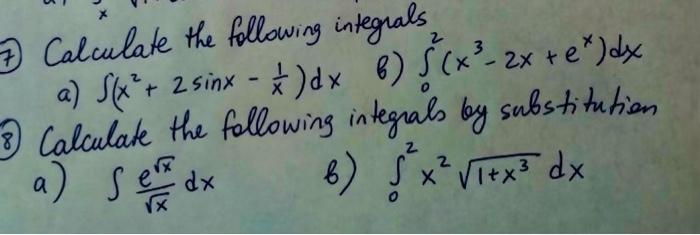 7) Calculate the following integrals
a) ∫(x² + 2 sinx - 1/x)dx b) ∫₀²(x³ - 2x + eˣ)dx
8) Calculate the following integrals by substitution
a) ∫ e^√x/√x dx b) ∫₀² x² √(1+x³) dx